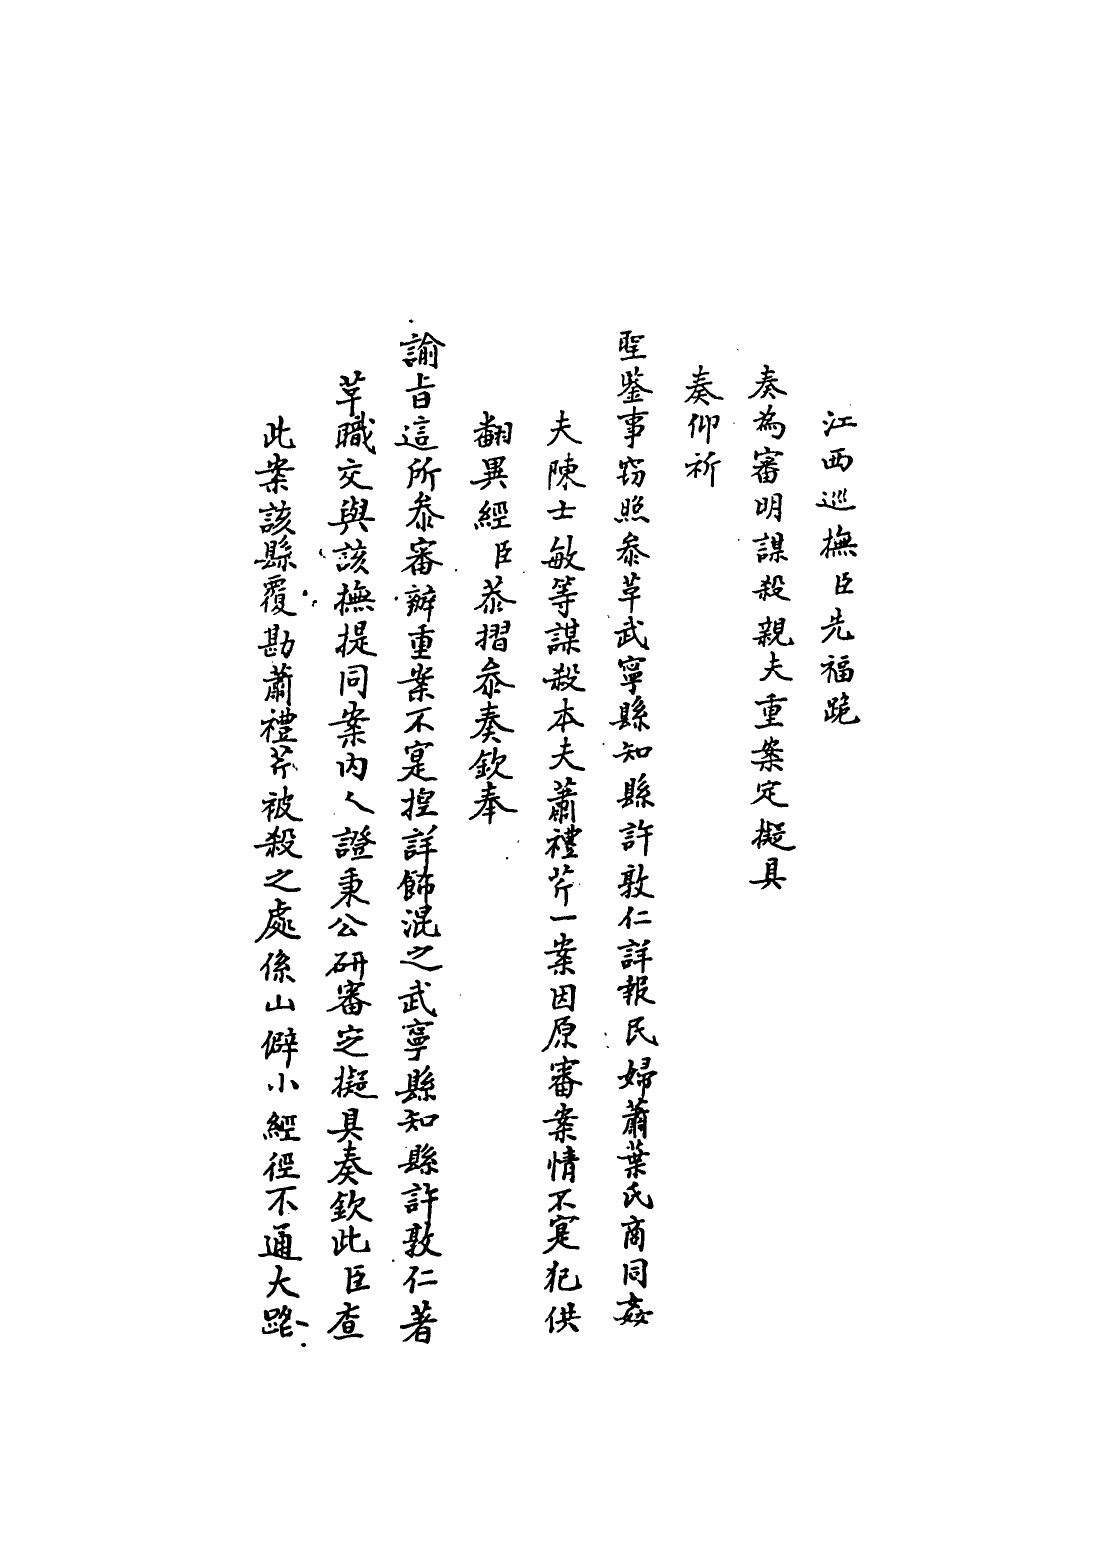 江西巡撫臣先福跪
奏為審明謀殺親夫重案定擬具
奏仰祈
聖鑒事竊照叅革武寧縣知縣許敦仁詳報民婦蕭葉氏商同姦
夫陳士敏等謀殺本夫蕭禮芹一案因原審案情不寔犯供
翻異經臣恭摺叅奏欽奉
諭旨這所叅審辦重案不寔捏詳飾混之武寧縣知縣許敦仁著
革職交與該撫提同案內人證秉公研審定擬具奏欽此臣查
此案該縣覆勘蕭禮芹被殺之處係山僻小經徑不通大路